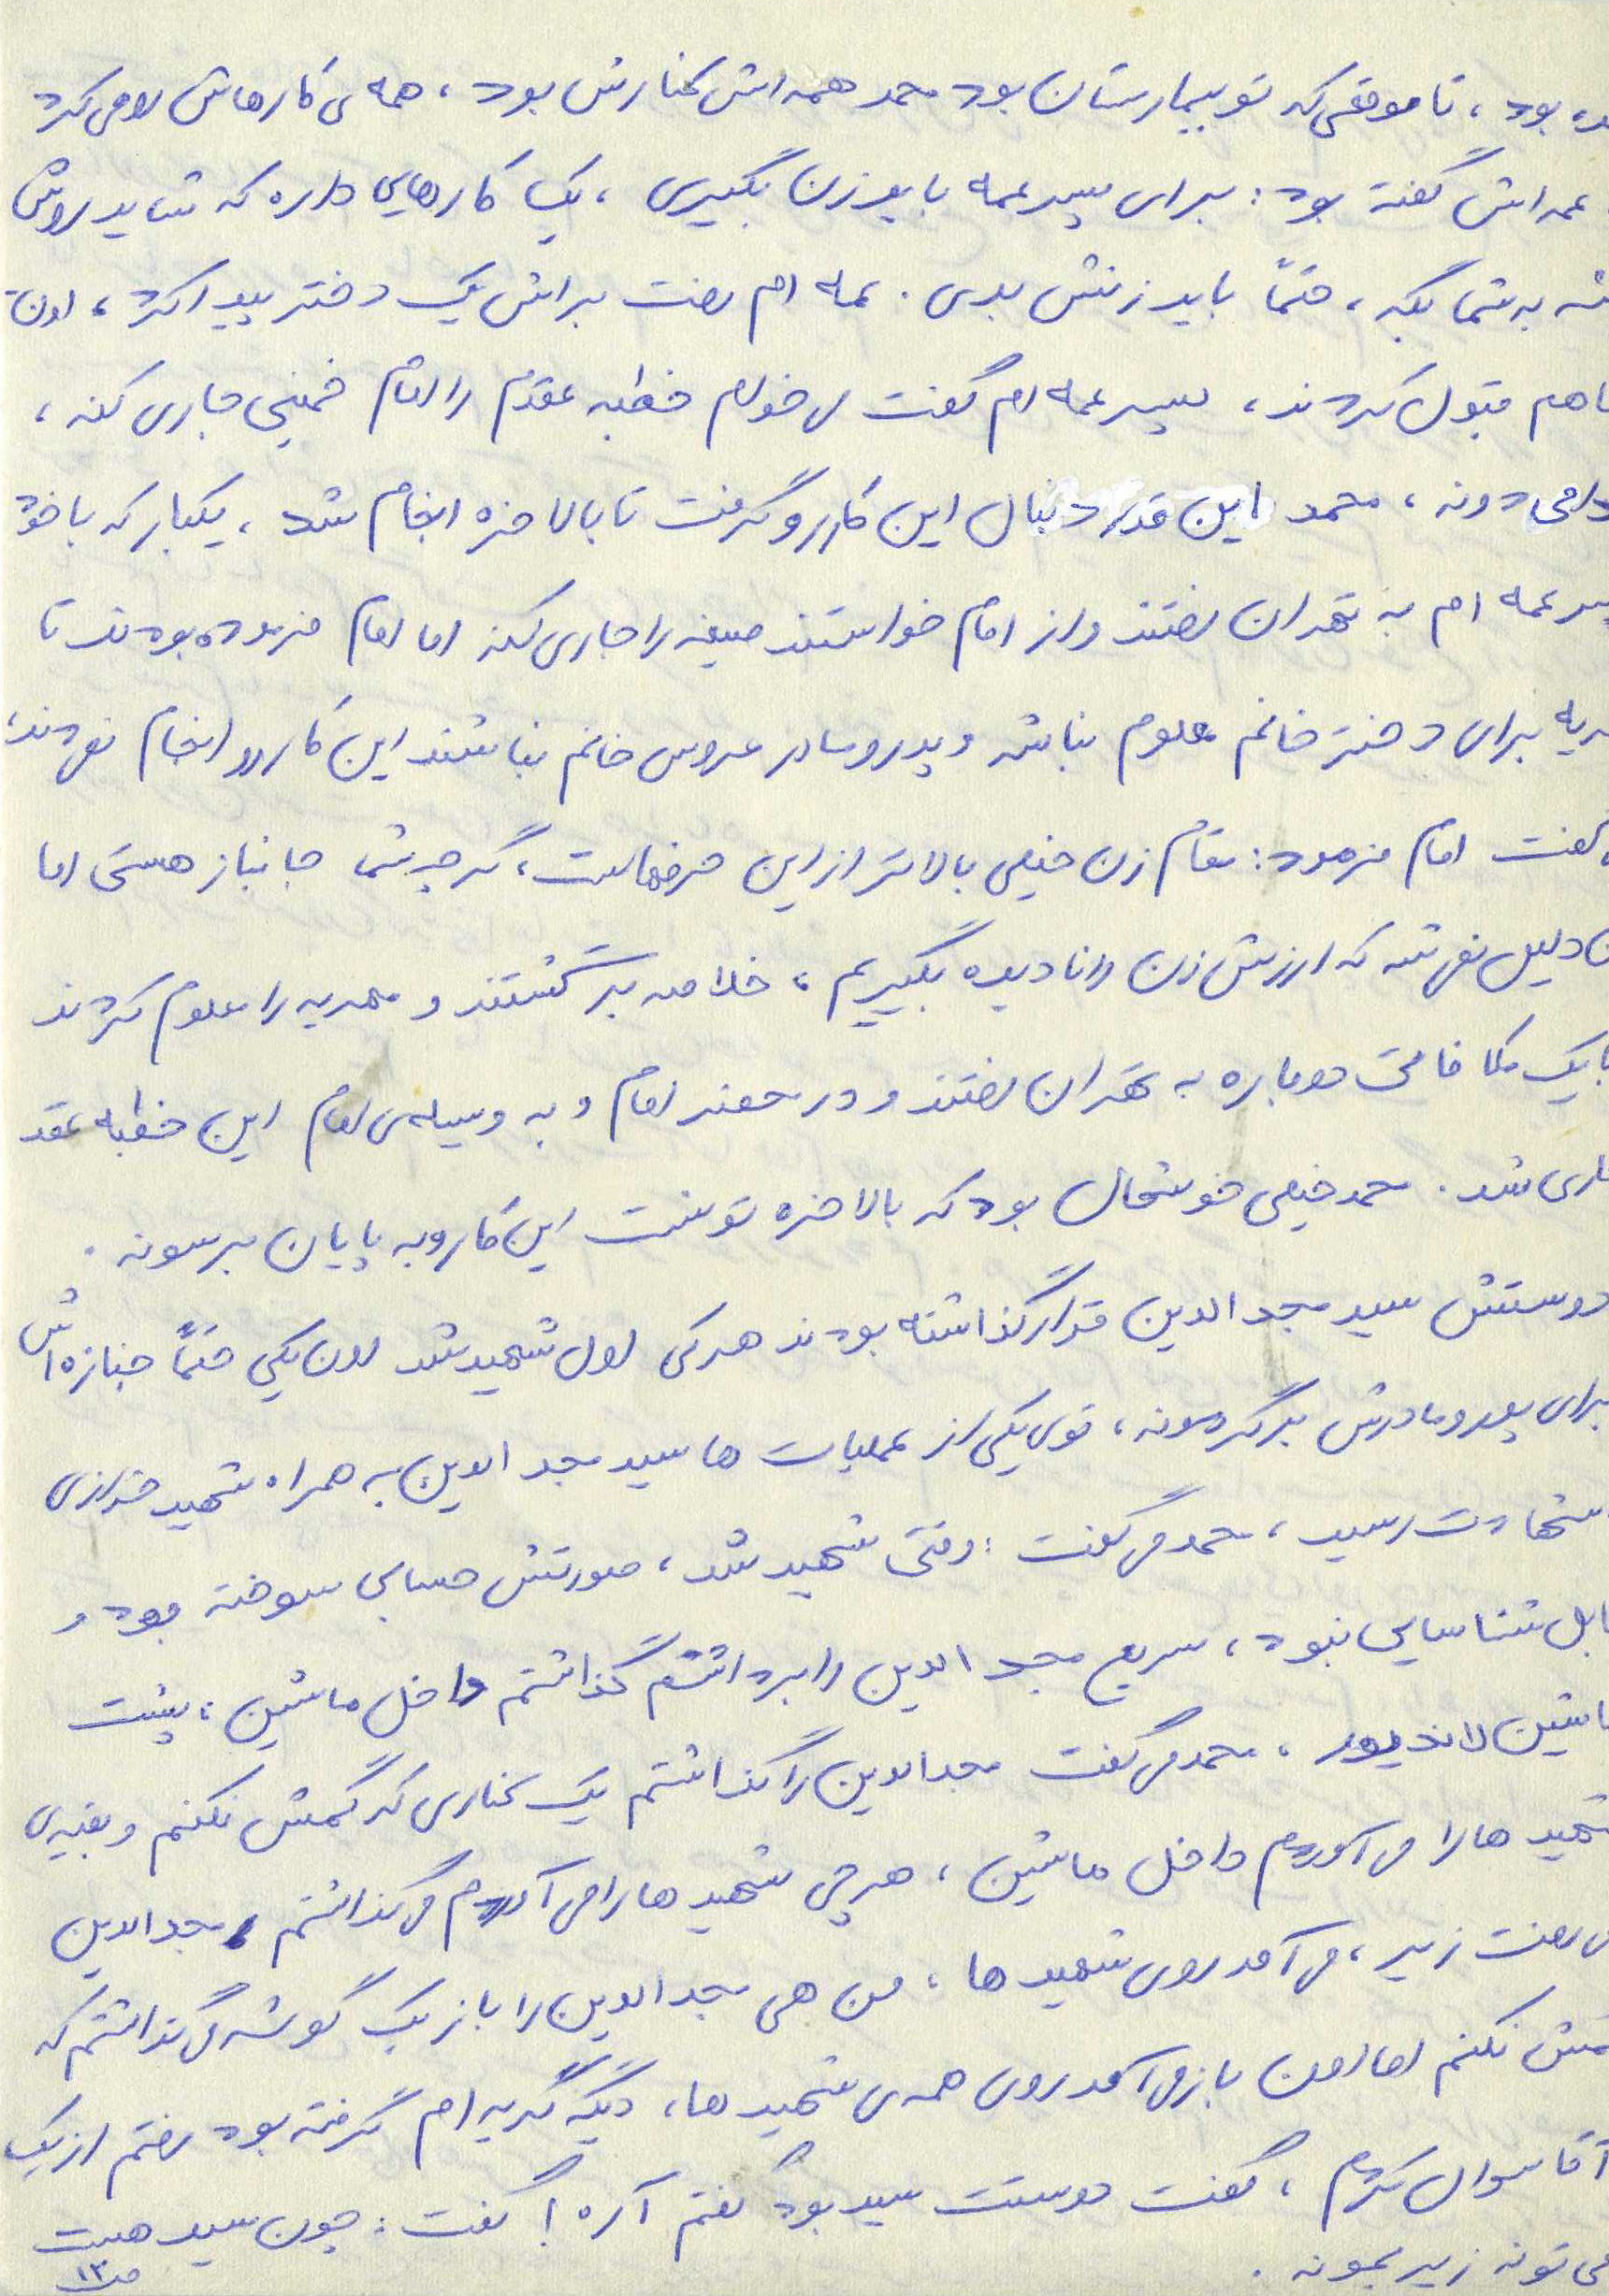 بود، تا موقعی که تو بیمارستان بود محمد همه اش کنارش بود، همه ی کارهاش را می کرد
عمه اش گفته بود: برای پسر عمه باید زن بگیری، یک کارهایی داره که شاید روش
نشه به شما بگه، حتماً باید زنش بدی. عمه ام رفت براش یک دختر پیدا کرد، اون
هم قبول کردند، پسر عمه ام گفت می خوام خطبه عقدم را امام خمینی جاری کنه،
محمد این قدر دنبال این کار رو گرفت تا بالاخره انجام شد، یکبار که با خود
پسر عمه ام به تهران رفتند و از امام خواستند صیغه را جاری کنه اما امام فرموده بودند تا
مهریه برای دختر خانم معلوم نباشه و پدر و مادر عروس خانم نباشند این کار رو انجام نمی دند،
گفت امام فرمود: مقام زن خیلی بالاتر از این حرفهاست، گرچه شما جانباز هستی اما
دلیل نمی شه که ارزش زن را نادیده بگیریم، خلاصه برگشتند و مهریه را معلوم کردند
با یک ملاقاتی دوباره به تهران رفتند و در محضر امام و به وسیله ی امام این خطبه عقد
جاری شد. محمد خیلی خوشحال بود که بالاخره تونست این کار و به پایان برسونه.
دوستش سید مجدالدین قرار گذاشته بودند هر کی اول شهید شد اون یکی حتماً جنازه اش
برای پدر و مادرش برگردونه، توی یکی از عملیات ها سید مجدالدین به همراه شهید خرازی
شهادت رسید، محمد می گفت: وقتی شهید شد، صورتش حسابی سوخته بود و
قابل شناسایی نبود، سریع مجدالدین را برداشتم گذاشتم داخل ماشین، پشت
ماشین لندیور، محمد می گفت مجدالدین را گذاشتم یک کناری که گمش نکنم و بقیه ی
شهید ها را می آوردم داخل ماشین، هر چی شهید ها را می آوردم می گذاشتم، مجدالدین
می رفت زیر، می آمد روی شهید ها، من هی مجدالدین را باز یک گوشه می گذاشتم که
گمش نکنم اما اون باز می آمد روی همه ی شهید ها، دیگه گریه ام گرفته بود رفتم از یک
آقا سوال کردم، گفت دوستت سید بود گفتم آره! گفت: چون سید هست
نمی تونه زیر بمونه.
ص ۱۳